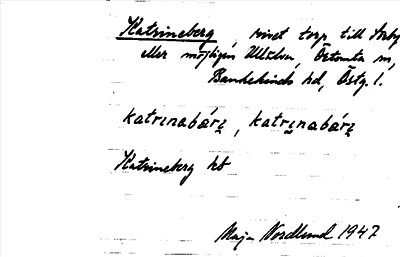 Katrineberg, rivet torp till Arby
eller möjligen Ullälva, Östomta m,
Bankekinds hd, Östg. l.
katrınabárı̨, katrı̨nabárı̨
Katrineberg kb
Maja Nordlund 1947